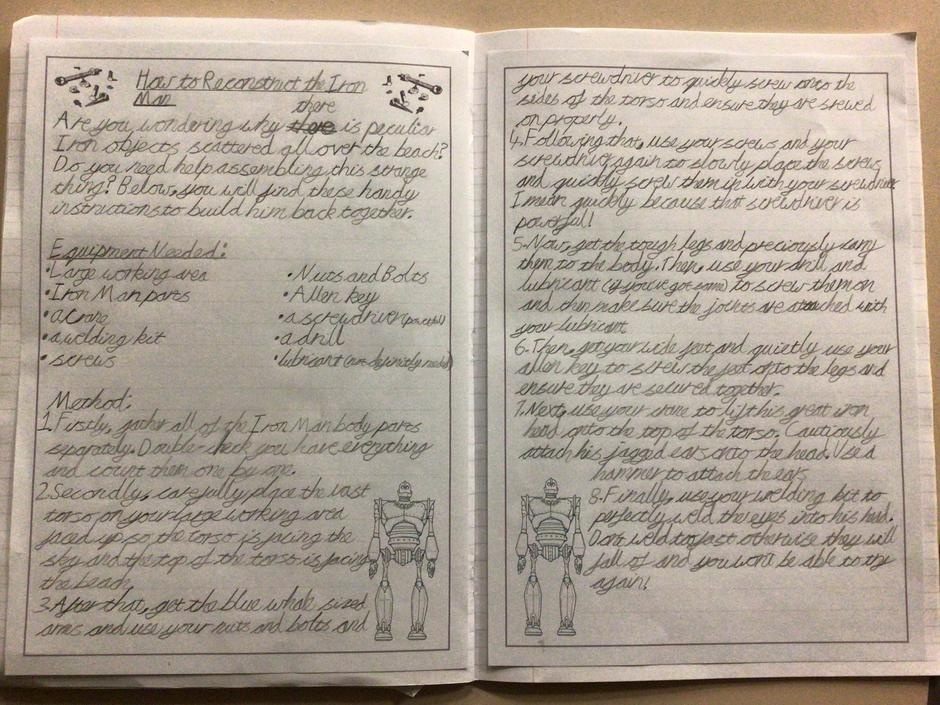 How to Reconstruct the Iron
Man
there
Are you wondering why there is peculiar
Iron objects scattered all over the beach?
Do you need help assembling this strange
thing? Below, you will find these handy
instructions to build him back together.
Equipment Needed:
•Large working area
•Iron Man parts
•a crane
•a welding kit
•screws
•Nuts and Bolts
•Allen key
•a screwdriver (powerful)
•a drill
•lubricant (not definitely needed)
Method:
1.Firstly, gather all of the Iron Man body parts
separately. Double-check you have everything
and count them one by one.
2.Secondly, carefully place the vast
torso on your large working area
faced up so the torso is facing the
sky and the top of the torso is facing
the beach.
3.After that, get the blue whale sized
arms and use your nuts and bolts and
your screwdriver to quickly screw onto the
sides of the torso and ensure they are srewed
on properly.
4.Following that, use your screws and your
screwdriver again to slowly place the screws
and quickly screw them in with your screwdriver
I mean quickly because that screwdriver is
powerful!
5.Now, get the tough legs and preciously carry
them to the body. Then, use your drill and
lubricant (if you've got some) to screw them on
and then make sure the joints are attached with
your lubricant
6.Then, get your wide feet and quietly use your
allen key to screw the feet onto the legs and
ensure they are secured together.
7.Next, use your crane to lift his great iron
head onto the top of the torso. Cautiously
attach his jagged ears onto the head. Use a
hammer to attach the ears
8.Finally, use your welding kit to
perfectly weld the eyes into his head.
Dont weld to fast otherwise they will
fall of and you won't be able to try
again!